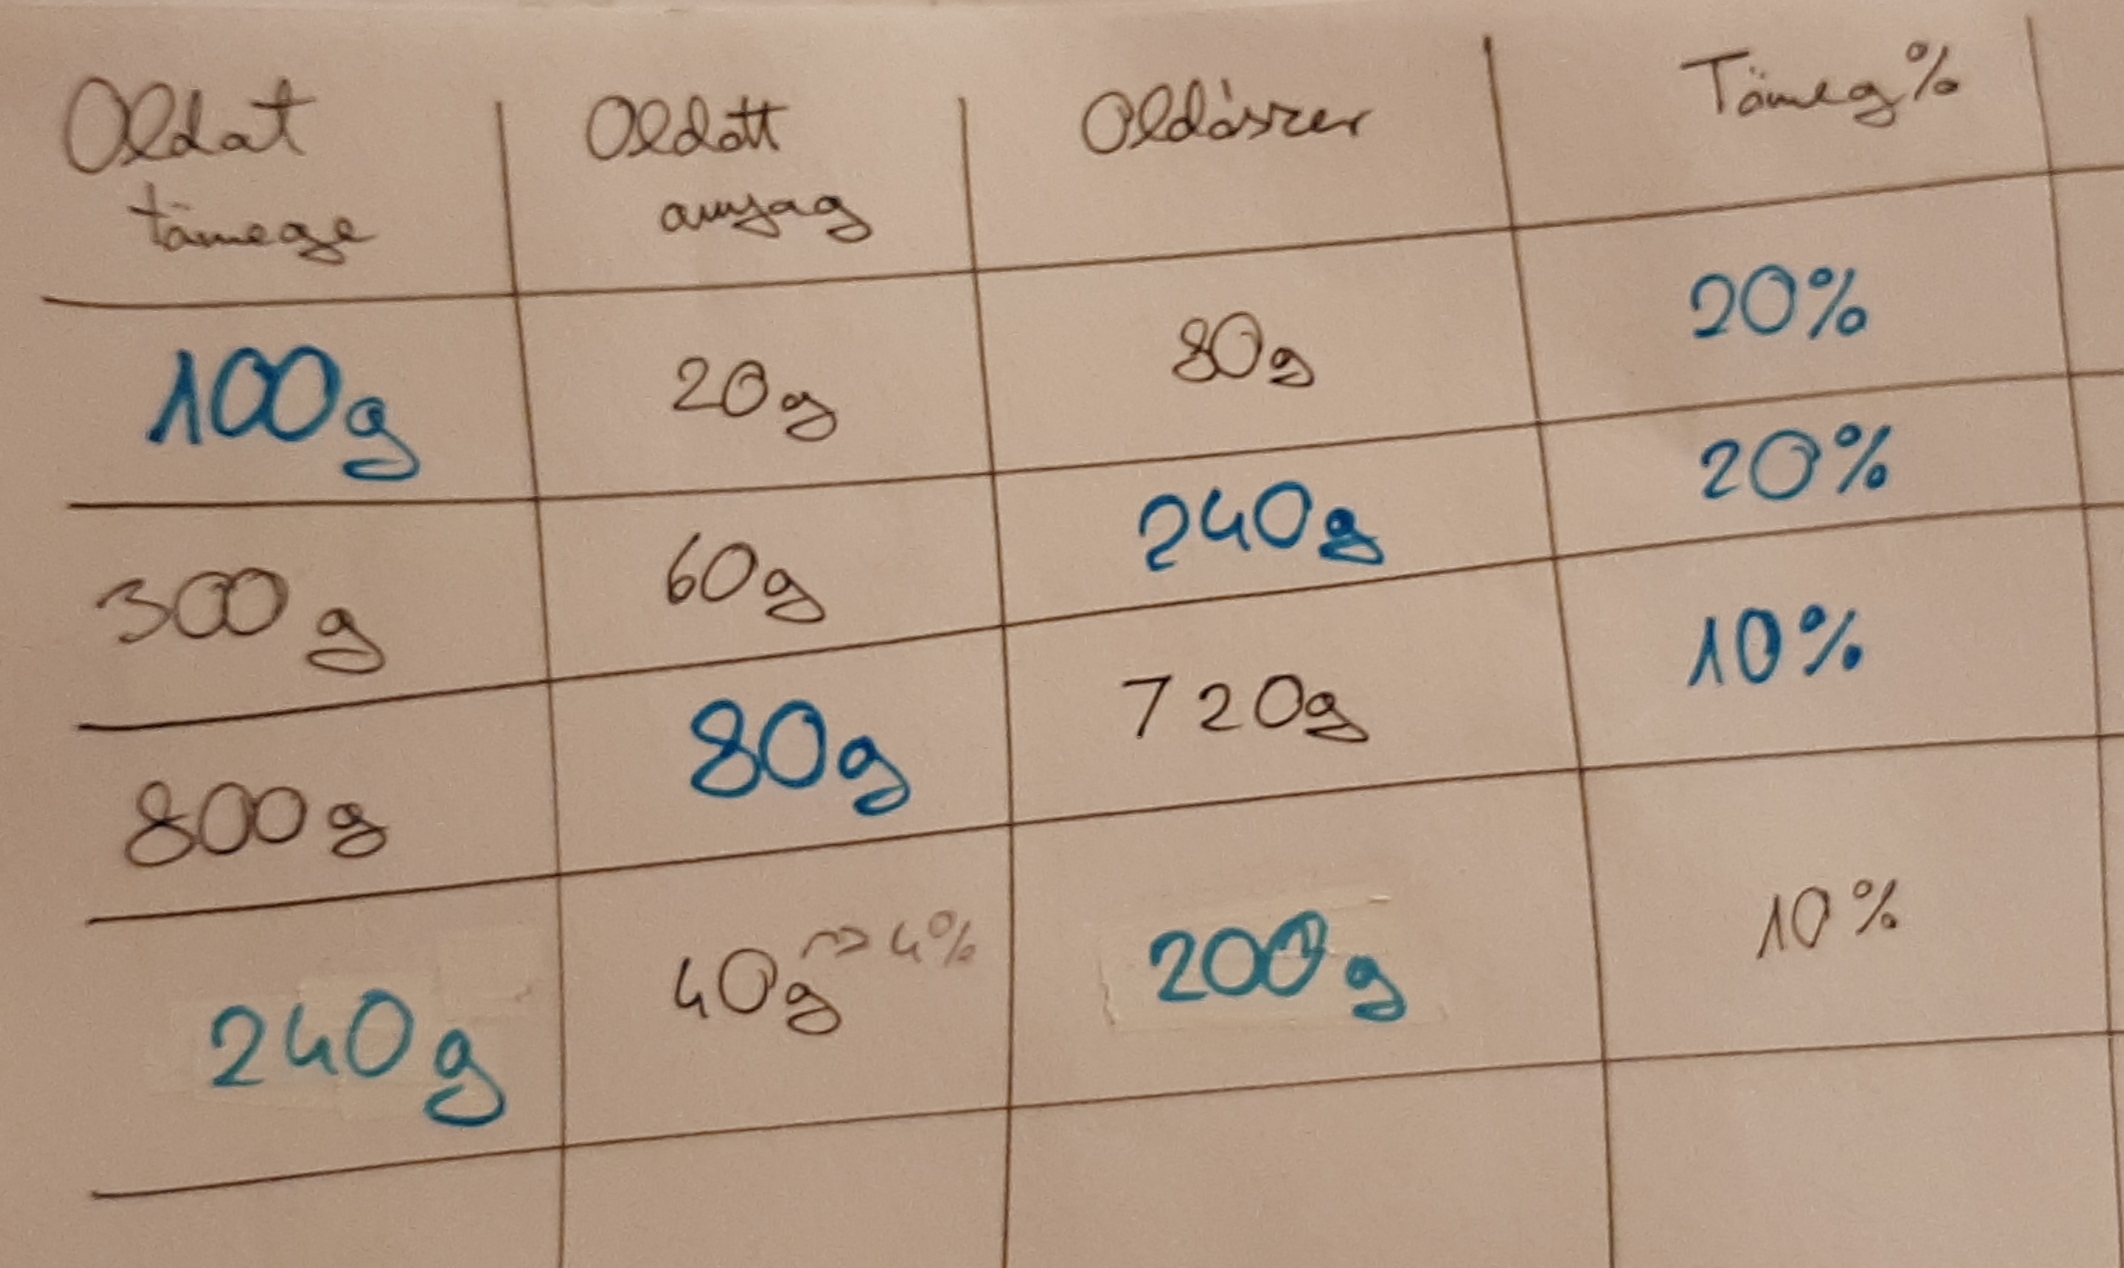 Oldat tömege
Oldott anyag
Oldószer
Tömeg%
100g 20g 80g 20%
300g 60g 240g 20%
800g 80g 720g 10%
240g 40g → 4% 200g 10%